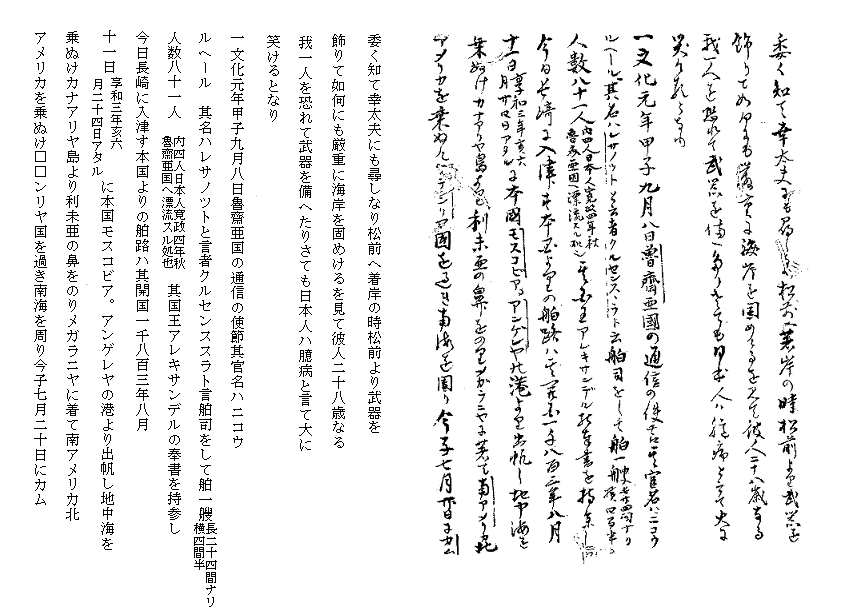 委く知て幸太夫にも尋しなり松前へ着岸の時松前より武器を
飾りて如何にも厳重に海岸を固めけるを見て彼人二十八歳なる
我一人を恐れて武器を備へたりさても日本人ハ臆病と言て大に
笑けるとなり
一文化元年甲子九月八日魯齋亜国の通信の使節其官名ハニコウ
ルヘール其名ハレサノツト言者クルセンススラト言舶司をして舶一艘長二十四間ナリ横四間半
人数八十一人内四人日本人寛政四年秋魯齋亜国へ漂流スル処也其国王アレキサンデルの奉書を持参し
今日長崎に入津す本国よりの舶路ハ其開国一千八百三年八月
十一日享和三年亥六月廿四日アタルに本国モスコビア。アンゲレヤの港より出帆し地中海を
乗ぬけカナアリヤ島より利未亜の鼻をのりメガラニヤに着て南アメリカ北
アメリカを乗ぬけンリヤ国を過き南海を周り今子七月廿日にカム
委く知て幸太夫にも尋しなり松前へ着岸の時松前より武器を
飾りて如何にも厳重に海岸を固めけるを見て彼人二十八歳なる
我一人を恐れて武器を備へたりさても日本人ハ臆病と言て大に
笑けるとなり
一文化元年甲子九月八日魯齋亜国の通信の使節其官名ハニコウ
ルヘール　其名ハレサノツトと言者クルセンススラト言舶司をして舶一艘長二十四間ナリ横四間半
人数八十一人　内四人日本人寛政四年秋魯齋亜国へ漂流スル処也　其国王アレキサンデルの奉書を持参し
今日長崎に入津す本国よりの舶路ハ其開国一千八百三年八月
十一日　享和三年亥六月二十四日アタルに本国モスコビア。アンゲレヤの港より出帆し地中海を
乗ぬけカナアリヤ島より利未亜の鼻をのりメガラニヤに着て南アメリカ北
アメリカを乗ぬけ□□ンリヤ国を過き南海を周り今子七月二十日にカム